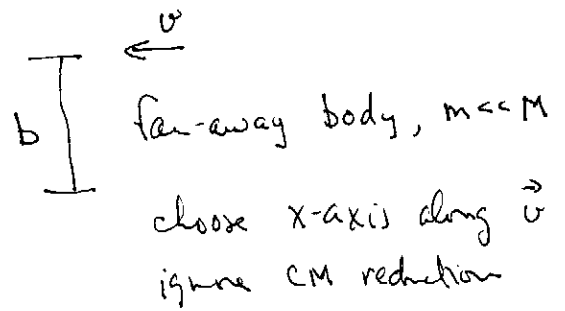 v
b
far-away body, m << M
choose x-axis along v⃗
ignore CM reduction